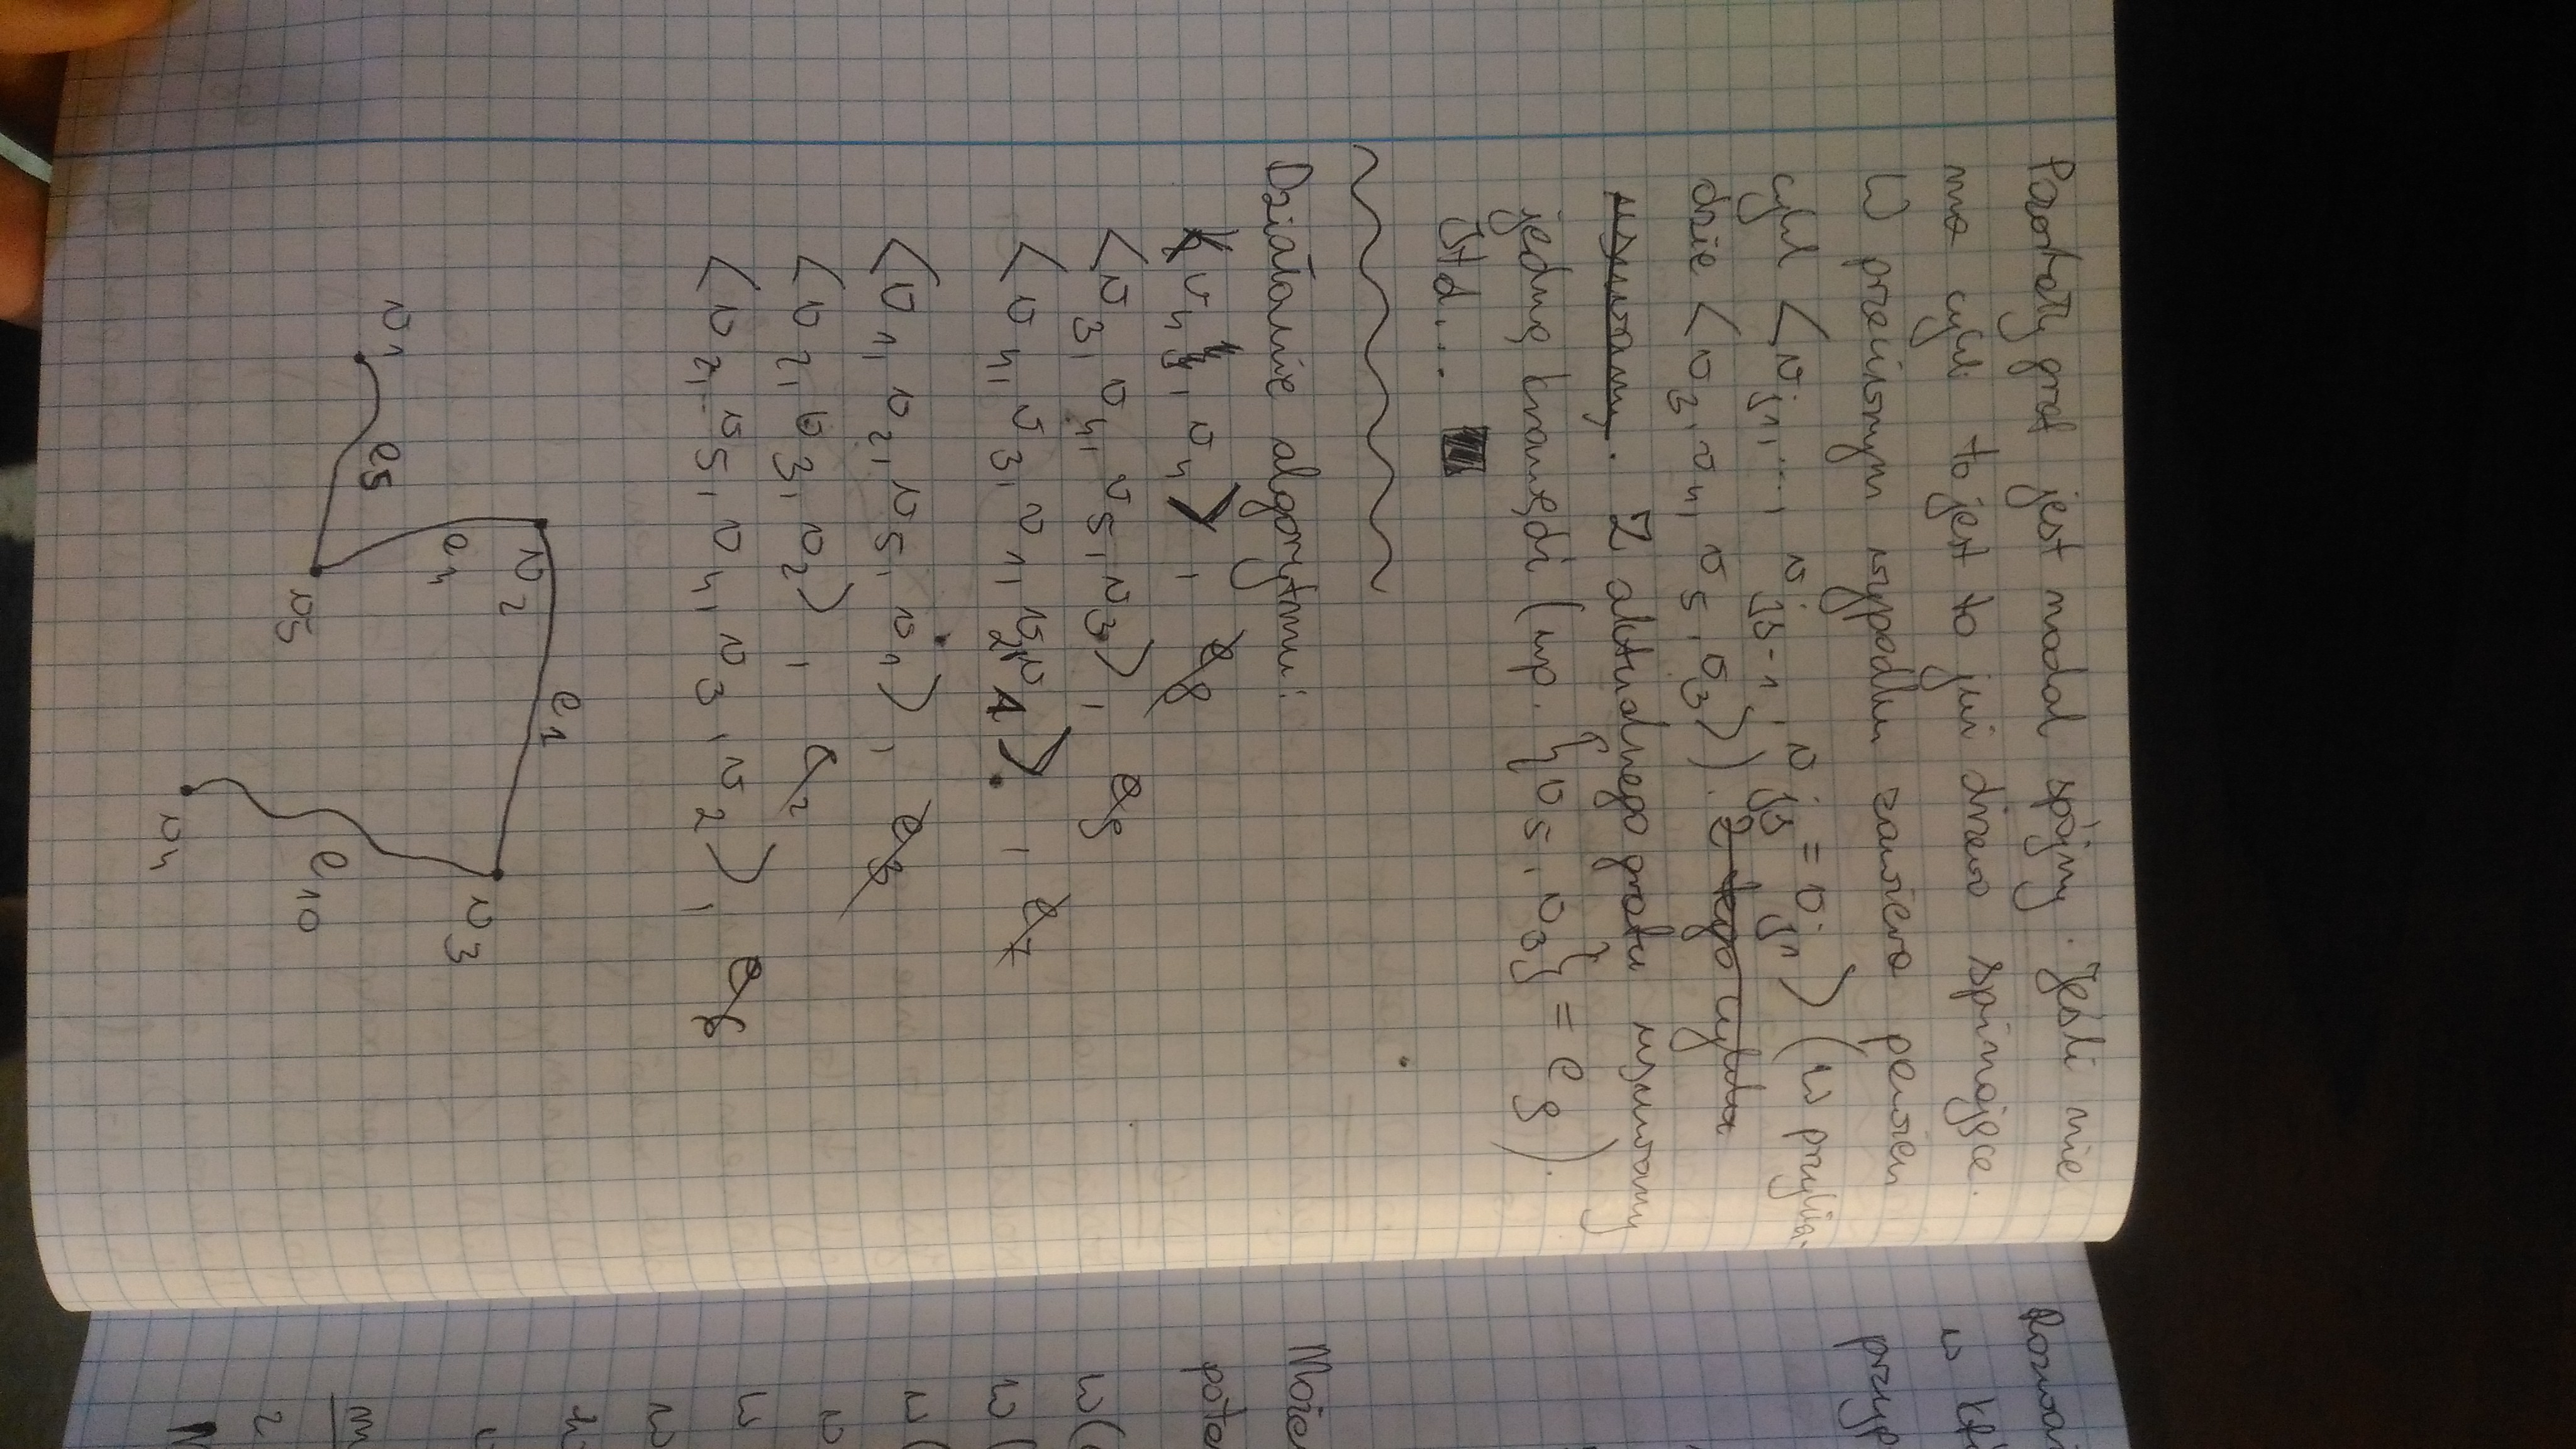 Pozostały graf jest nadal spójny. Jeśli nie
ma cykli to jest to już drzewo spinające.
W przeciwnym wypadku zawiera pewien
cykl ⟨v_j1, ..., v_js-1, v_js = v_j1⟩ (w przykła-
dzie ⟨v_3, v_4, v_5, v_3⟩). Z tego cyklu
usuwamy. Z aktualnego grafu usuwamy
jedną krawędź (np. {v_5, v_3} = e_9).
Itd... ■
Działanie algorytmu:
⟨v_4, v_4⟩, e_8
⟨v_3, v_4, v_5, v_3⟩, e_9
⟨v_4, v_3, v_1, v_2, v_4⟩, e_7
⟨v_1, v_2, v_5, v_1⟩, e_3
⟨v_2, v_3, v_2⟩, e_2
⟨v_2, v_5, v_4, v_3, v_2⟩, e_6
e_1
v_2
v_3
e_4
v_1
e_5
v_5
e_10
v_4
w
w
w
w
w
2